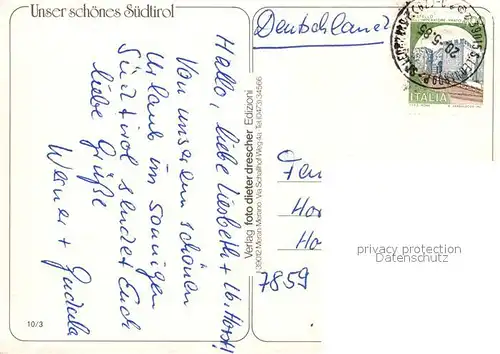 Unser schönes Südtirol
Hallo, liebe Liesbeth + lb. Horst!
Von unserem schönen
Urlaub im sonnigen
Südtirol sendet Euch
liebe Grüße
Werner + Gudula
10/3
Verlag foto dieter drescher Edizioni
I-39012 Meran-Merano · Via Schallhof Weg 4a · Tel. (0473) 34566
Deutschland
20.-5.86
ITALIA
Fam
Hor
Ha
7859
privacy protection
Datenschutz